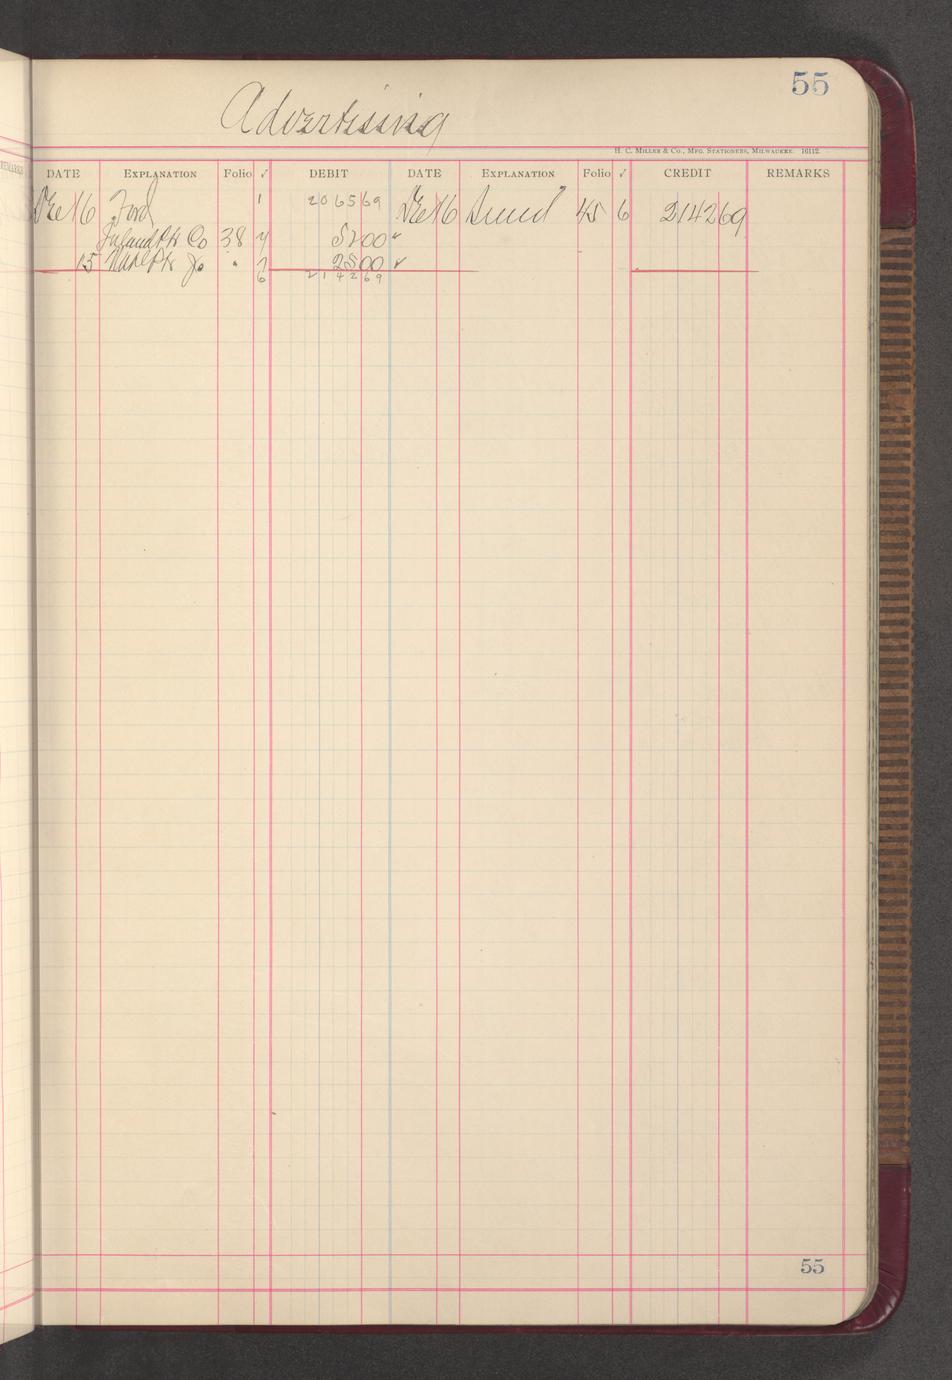 55
Advertising
H. C. Miller & Co., Mfg. Stationers, Milwaukee. 16112.
DATE Explanation Folio ✓ DEBIT DATE Explanation Folio ✓ CREDIT REMARKS
Dec 16 Ford 1 2065 69 Dec 16 45 6 2142 69
Inland Ptg Co 38 4 52 00 ✓
15 " 7 25 00 ✓
6 2142 69
55